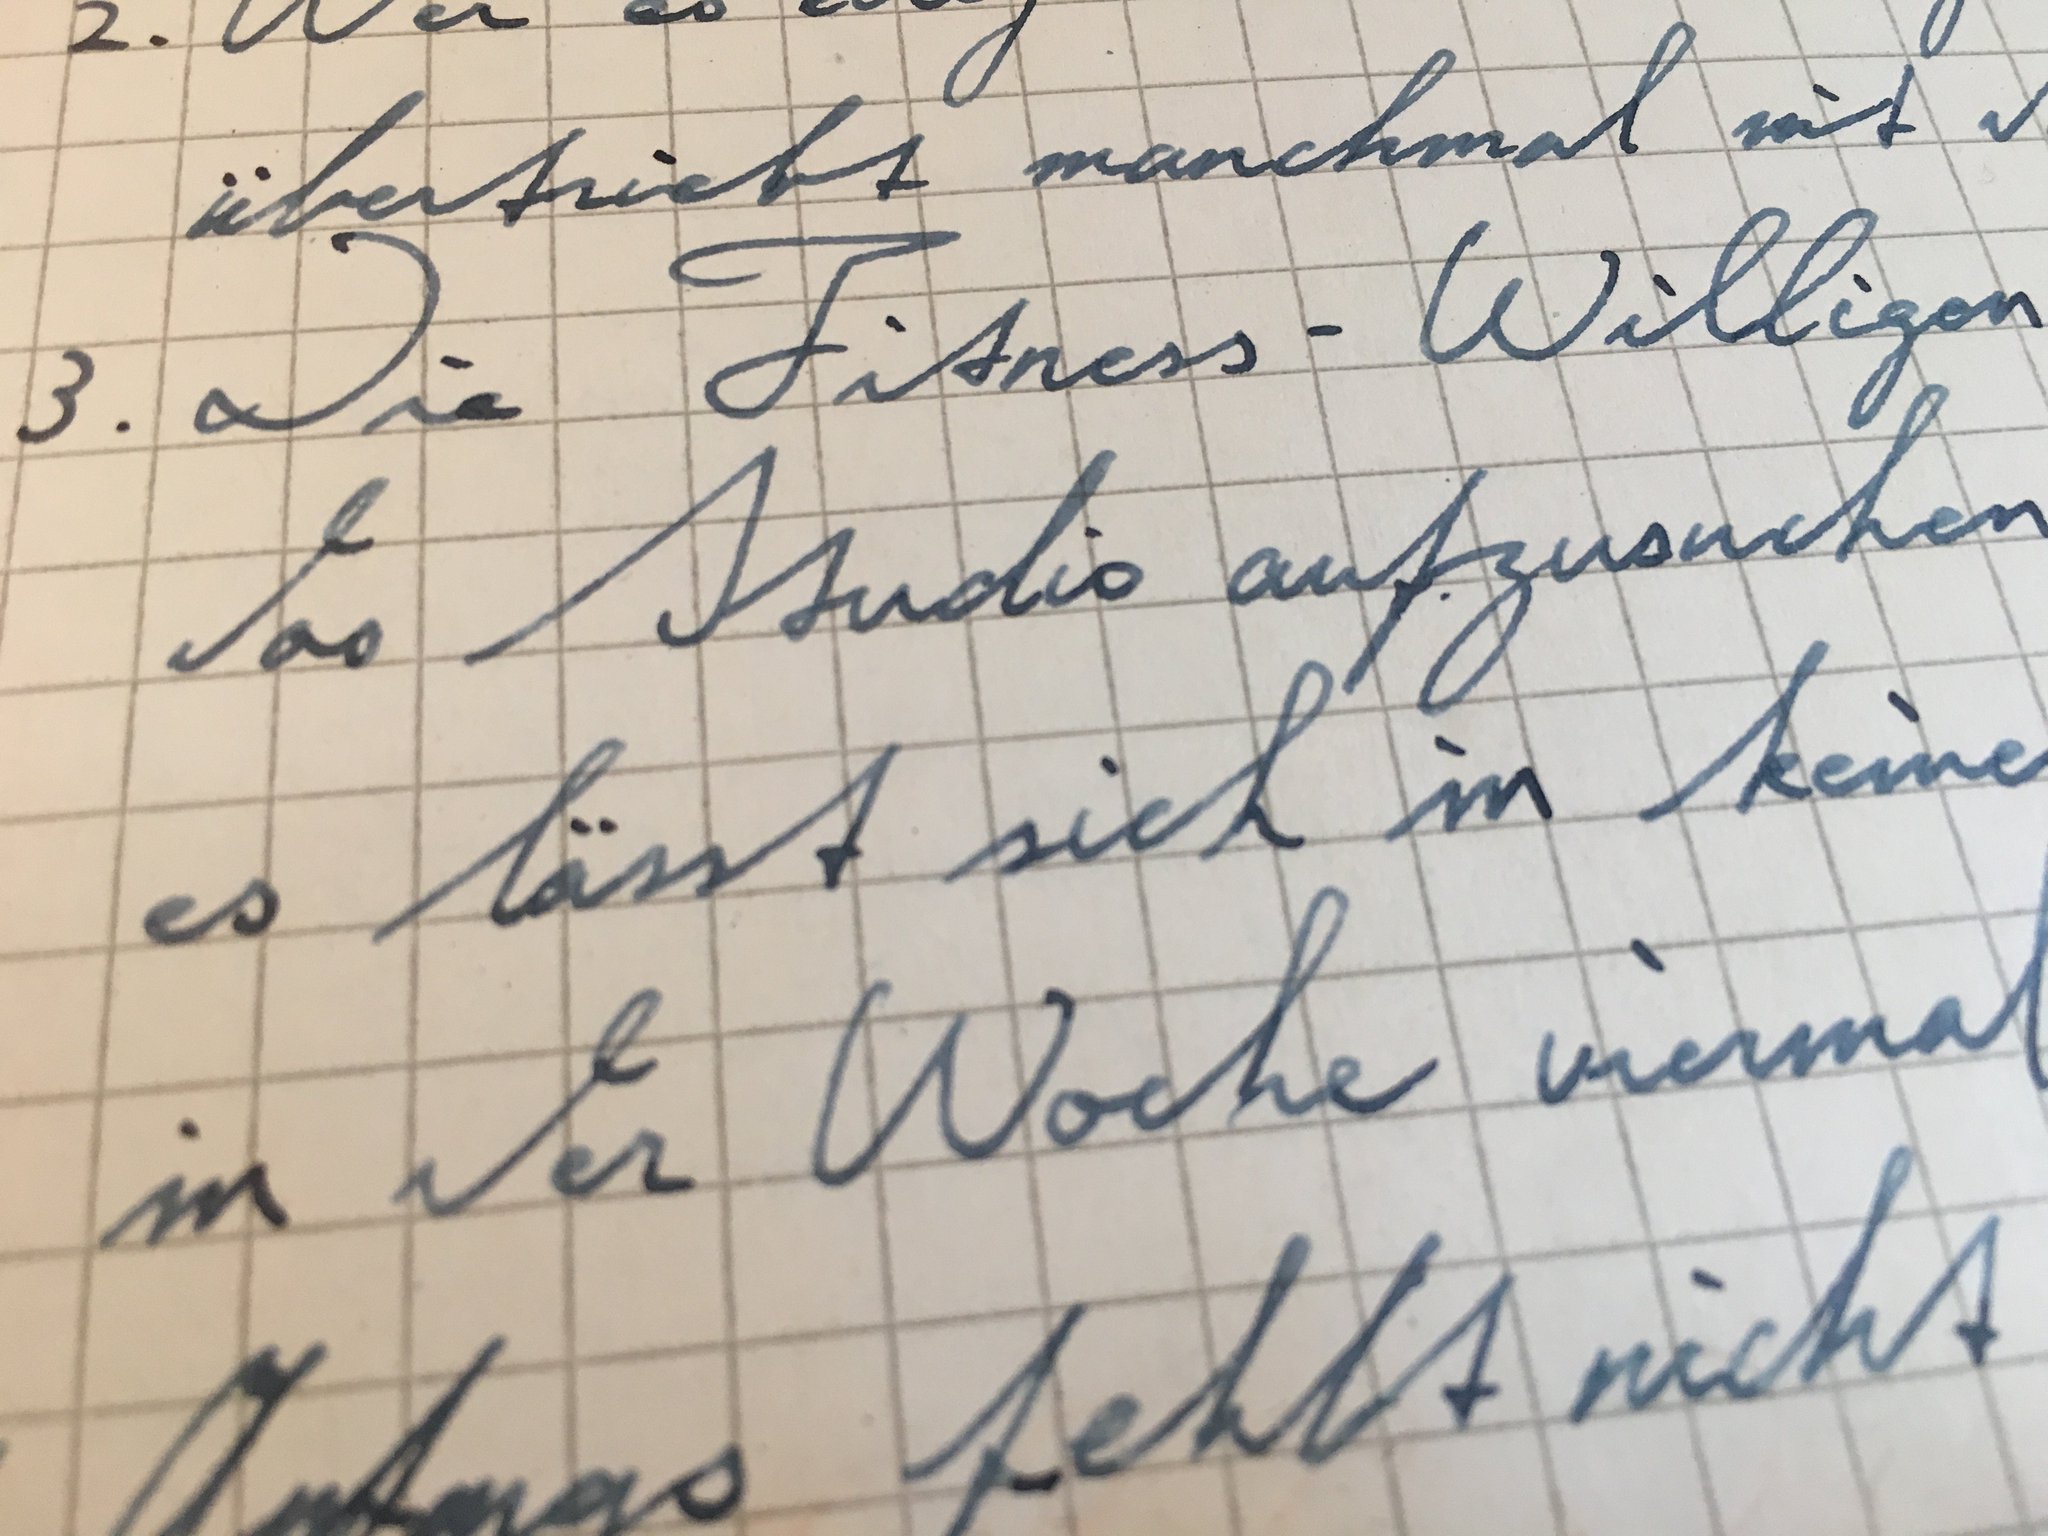 2. Wer es
übertreibt manchmal mit
3. Die Fitness-Willigen
das Studio aufzusuchen
es lässt sich in keine
in der Woche viermal
fehlt nicht